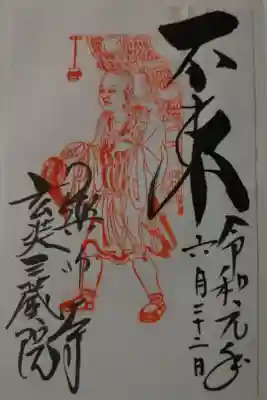 不東
令和元年
六月二十二日
薬師寺
玄奘三蔵院